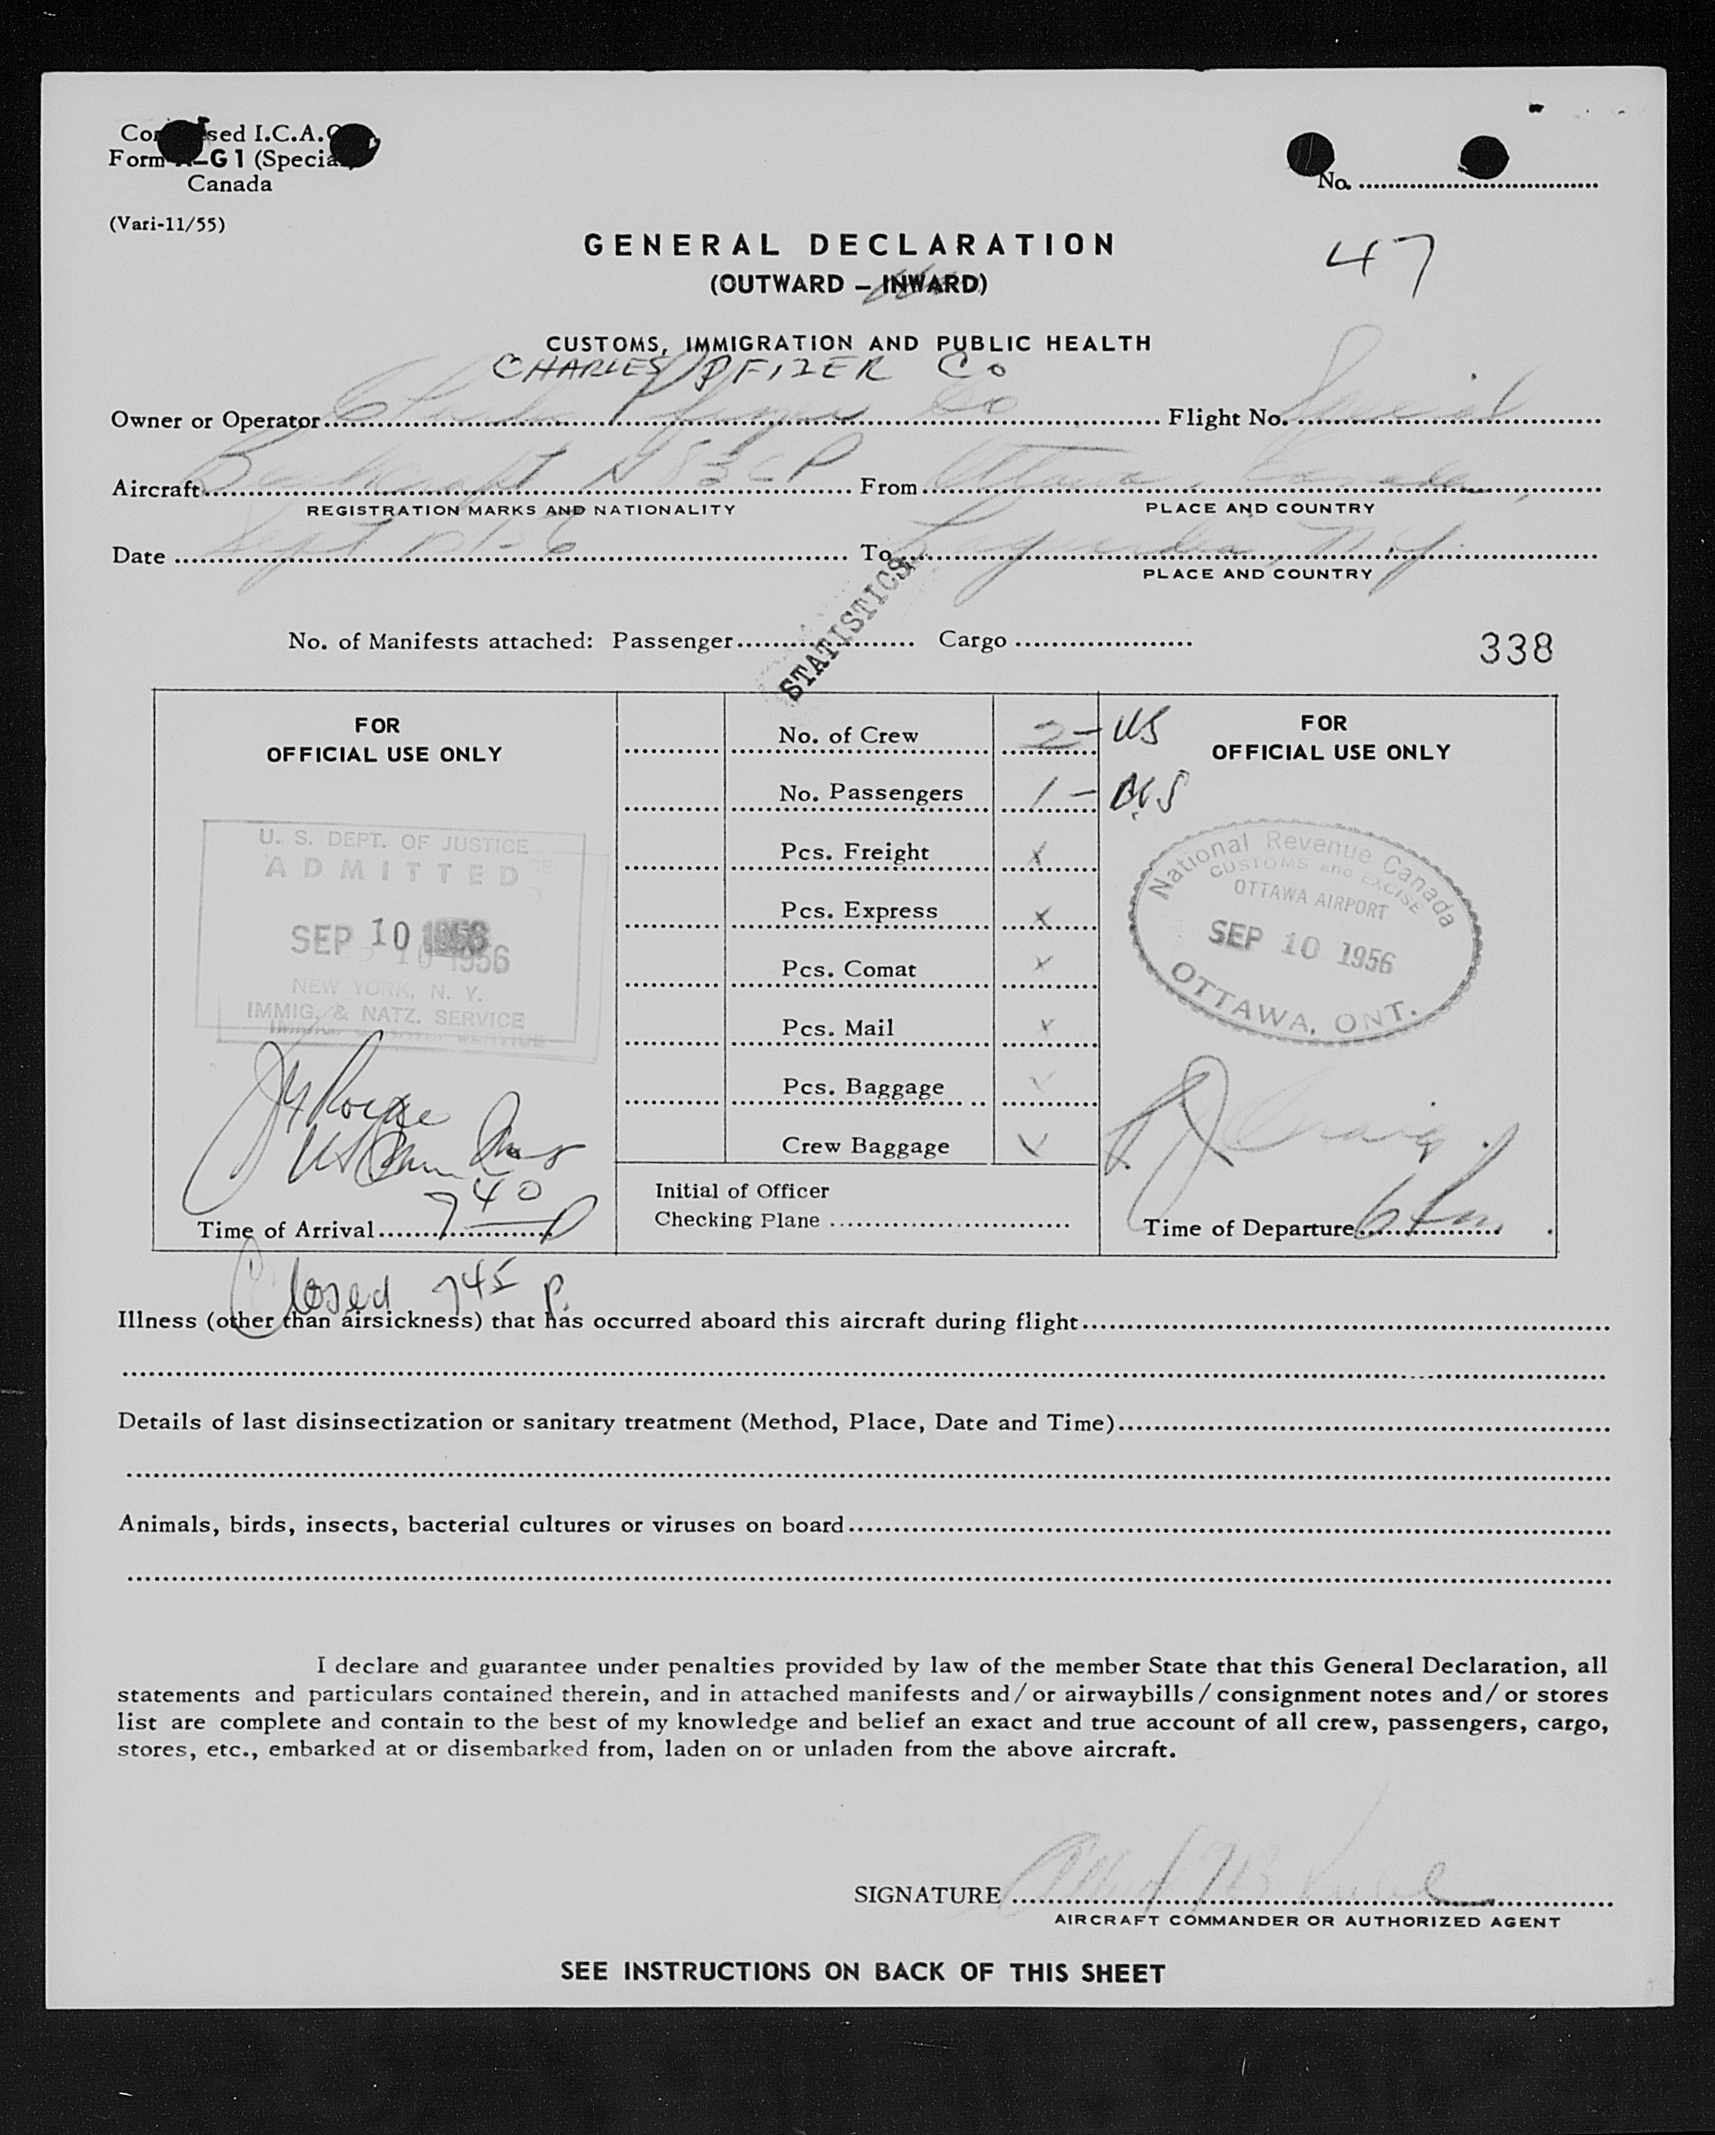 Condensed I.C.A.O.
Form A-G1 (Special)
Canada
(Vari-11/55)
No.
47
GENERAL DECLARATION
(OUTWARD – INWARD)
CUSTOMS, IMMIGRATION AND PUBLIC HEALTH
CHARLES PFIZER Co
Owner or Operator Charles Co Flight No. Special
Aircraft Beechcraft From Ottawa, Canada,
REGISTRATION MARKS AND NATIONALITY PLACE AND COUNTRY
Date Sept To Laguardia, N.Y.
PLACE AND COUNTRY
STATISTICS
No. of Manifests attached: Passenger Cargo
338
FOR
OFFICIAL USE ONLY
U. S. DEPT. OF JUSTICE
ADMITTED
SEP 10 1956
NEW YORK, N. Y.
IMMIG. & NATZ. SERVICE
Time of Arrival 740 P
No. of Crew 2 – US
No. Passengers 1 – US
Pcs. Freight X
Pcs. Express X
Pcs. Comat X
Pcs. Mail X
Pcs. Baggage ✓
Crew Baggage ✓
Initial of Officer
Checking Plane
FOR
OFFICIAL USE ONLY
National Revenue Canada
CUSTOMS and EXCISE
OTTAWA AIRPORT
SEP 10 1956
OTTAWA, ONT.
Craig
Time of Departure 6
Closed 745 p.
Illness (other than airsickness) that has occurred aboard this aircraft during flight
Details of last disinsectization or sanitary treatment (Method, Place, Date and Time)
Animals, birds, insects, bacterial cultures or viruses on board
I declare and guarantee under penalties provided by law of the member State that this General Declaration, all
statements and particulars contained therein, and in attached manifests and/or airwaybills/consignment notes and/or stores
list are complete and contain to the best of my knowledge and belief an exact and true account of all crew, passengers, cargo,
stores, etc., embarked at or disembarked from, laden on or unladen from the above aircraft.
SIGNATURE
AIRCRAFT COMMANDER OR AUTHORIZED AGENT
SEE INSTRUCTIONS ON BACK OF THIS SHEET